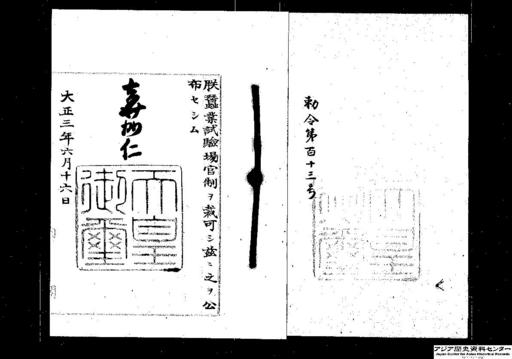 勅令第百十三号
朕蚕業試験場官制ヲ裁可シ茲ニ之ヲ公
布セシム
嘉仁
天皇
御璽
大正三年六月十六日
アジア歴史資料センター
Japan Center for Asian Historical Records